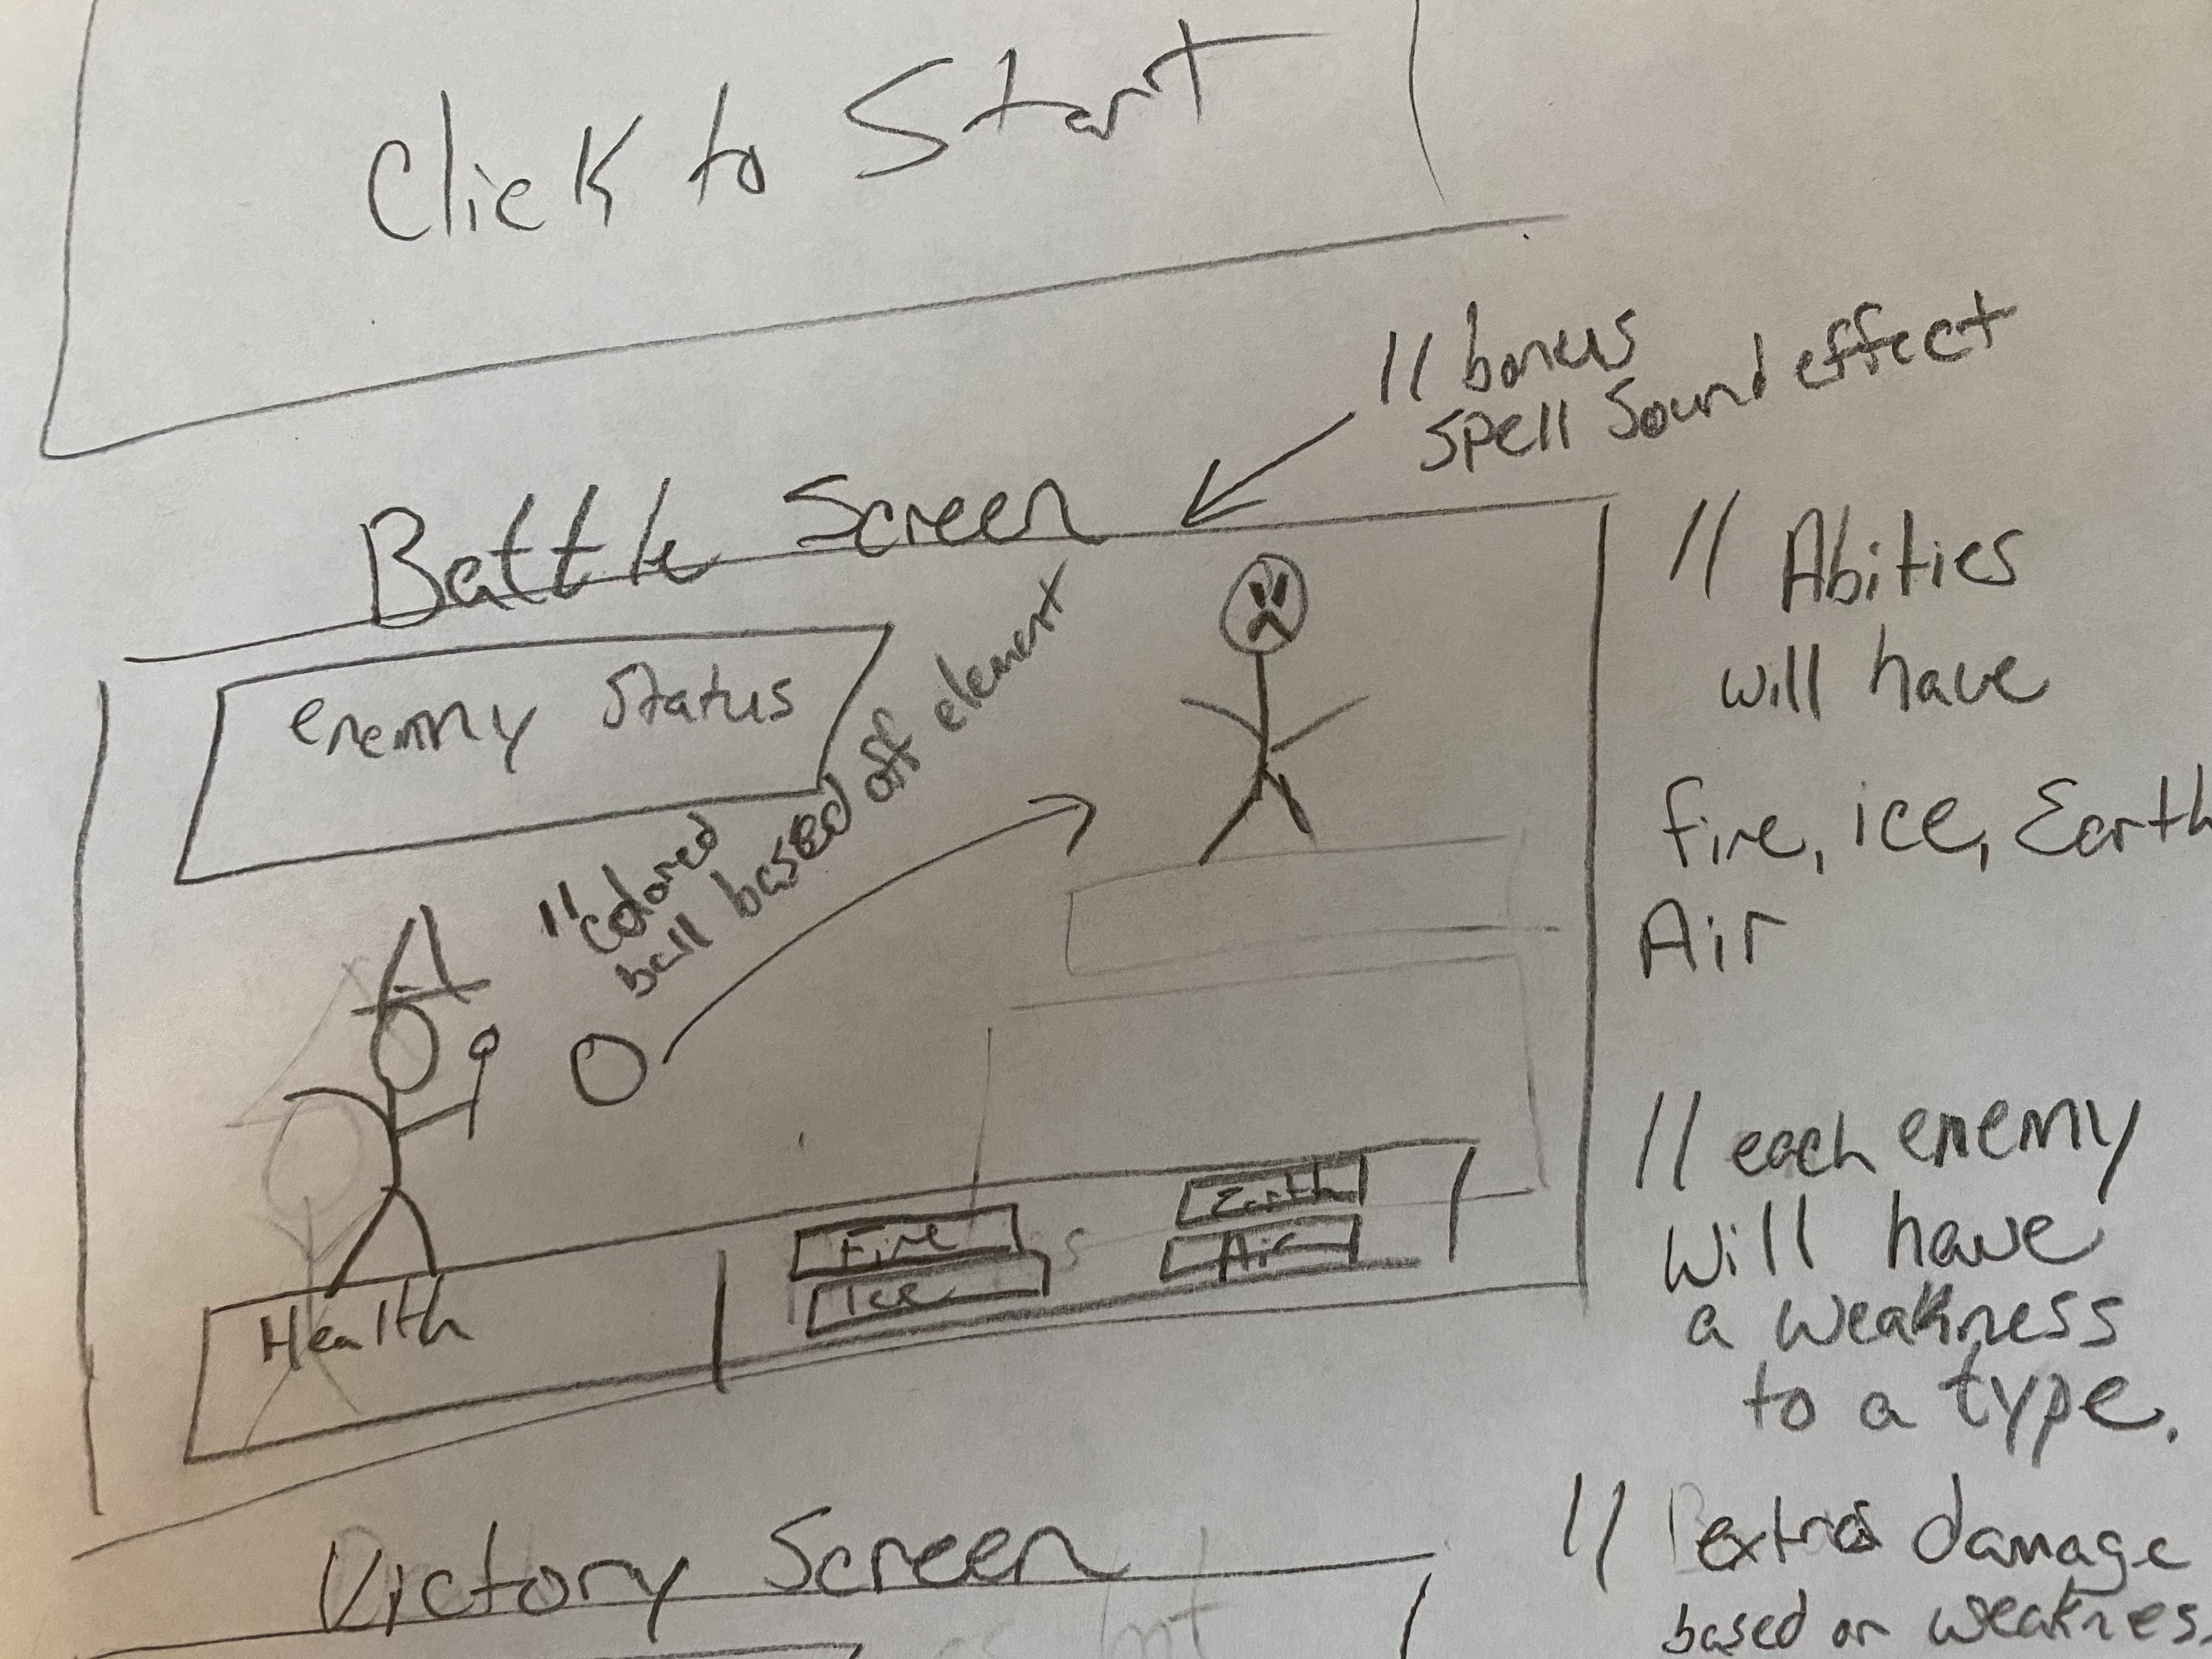 Click to Start
// bonus
Spell Sound effect
Battle Screen
enemny Status
// colored
ball based off element
// Abities
will have
fire, ice, Earth
Air
Fire
Ice
Earth
Air
Health
// each enemy
will have
a weakness
to a type.
// extra damage
based on weakness
Victory Screen